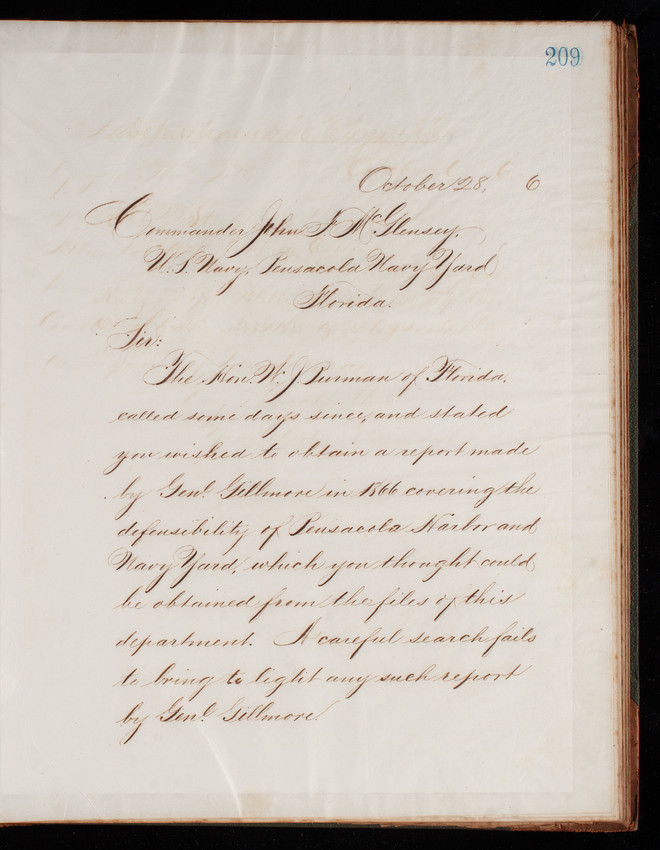 209
October 28, 6
Commander John F. McGlensey,
U.S. Navy, Pensacola Navy Yard
Florida.
Sir:
The Hon. W. J Purman of Florida,
called some days since, and stated
you wished to obtain a report made
by Genl. Gillmore in 1866 covering the
defensibility of Pensacola Harbor and
Navy Yard, which you thought could
be obtained from the files of this
department. A careful search fails
to bring to light any such report
by Genl. Gillmore.